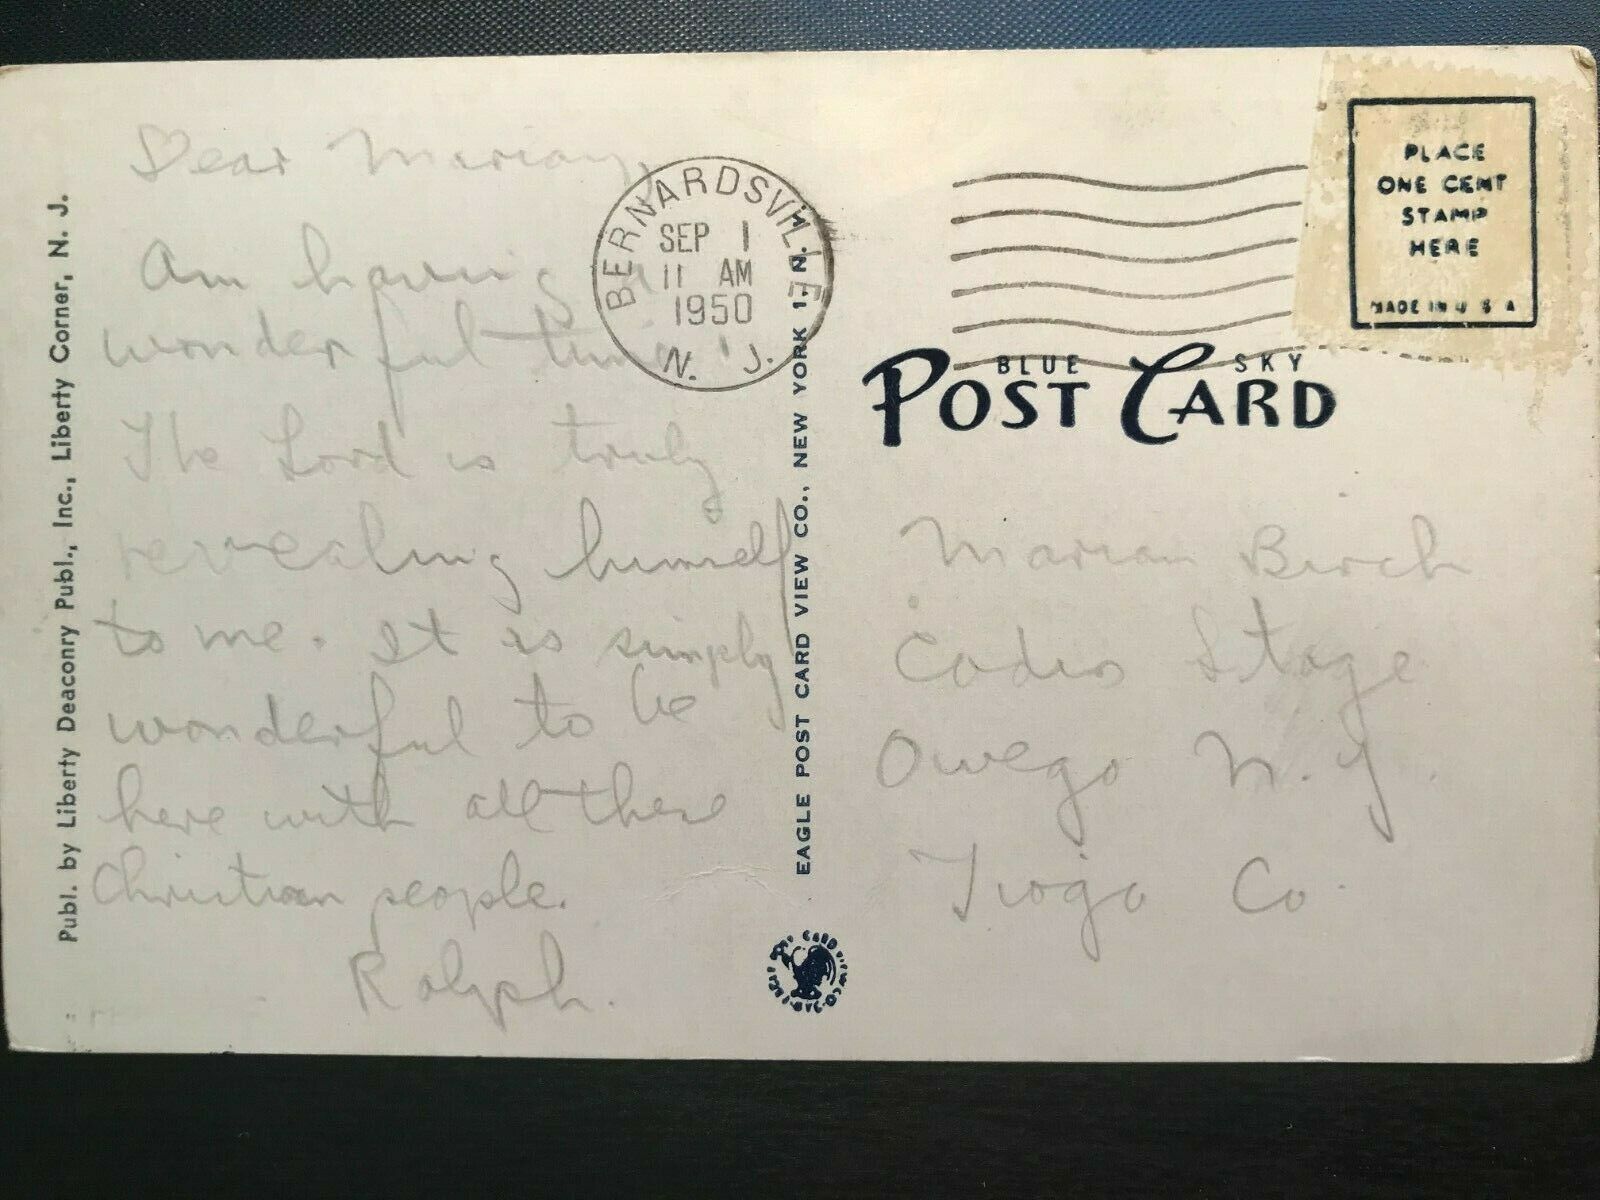 Publ. by Liberty Deaconry Publ., Inc., Liberty Corner, N. J.
Dear Marian,
Am having a
wonderful time.
The Lord is truly
revealing himself
to me. It is simply
wonderful to be
here with all these
Christian people.
Ralph.
BERNARDSVILLE
SEP 1
11 AM
1950
N. J.
EAGLE POST CARD VIEW CO., NEW YORK 1, N. Y.
PLACE
ONE CENT
STAMP
HERE
MADE IN U S A
BLUE SKY
POST CARD
Marian Birch
Stage
Owego N.Y.
Tioga Co.